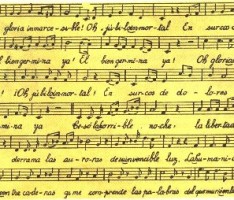 gloria inmarce- si-ble! ¡Oh, jú-bi-lo inmor-tal! En surcos
el bien ger-mi-na ya! El bien ger-mi-na ya! Oh gloria
¡Oh jú-bi-lo inmor-tal! En sur-cos de do-lo-res
mi-na ya Ce-só la ho-rri-ble no-che, la liber-tad
derrama las au-ro-ras de su invenci-ble luz, La hu-ma-ni-
en-tre ca-de-nas gi-me com-prende las pa-la-bras del que murió en la